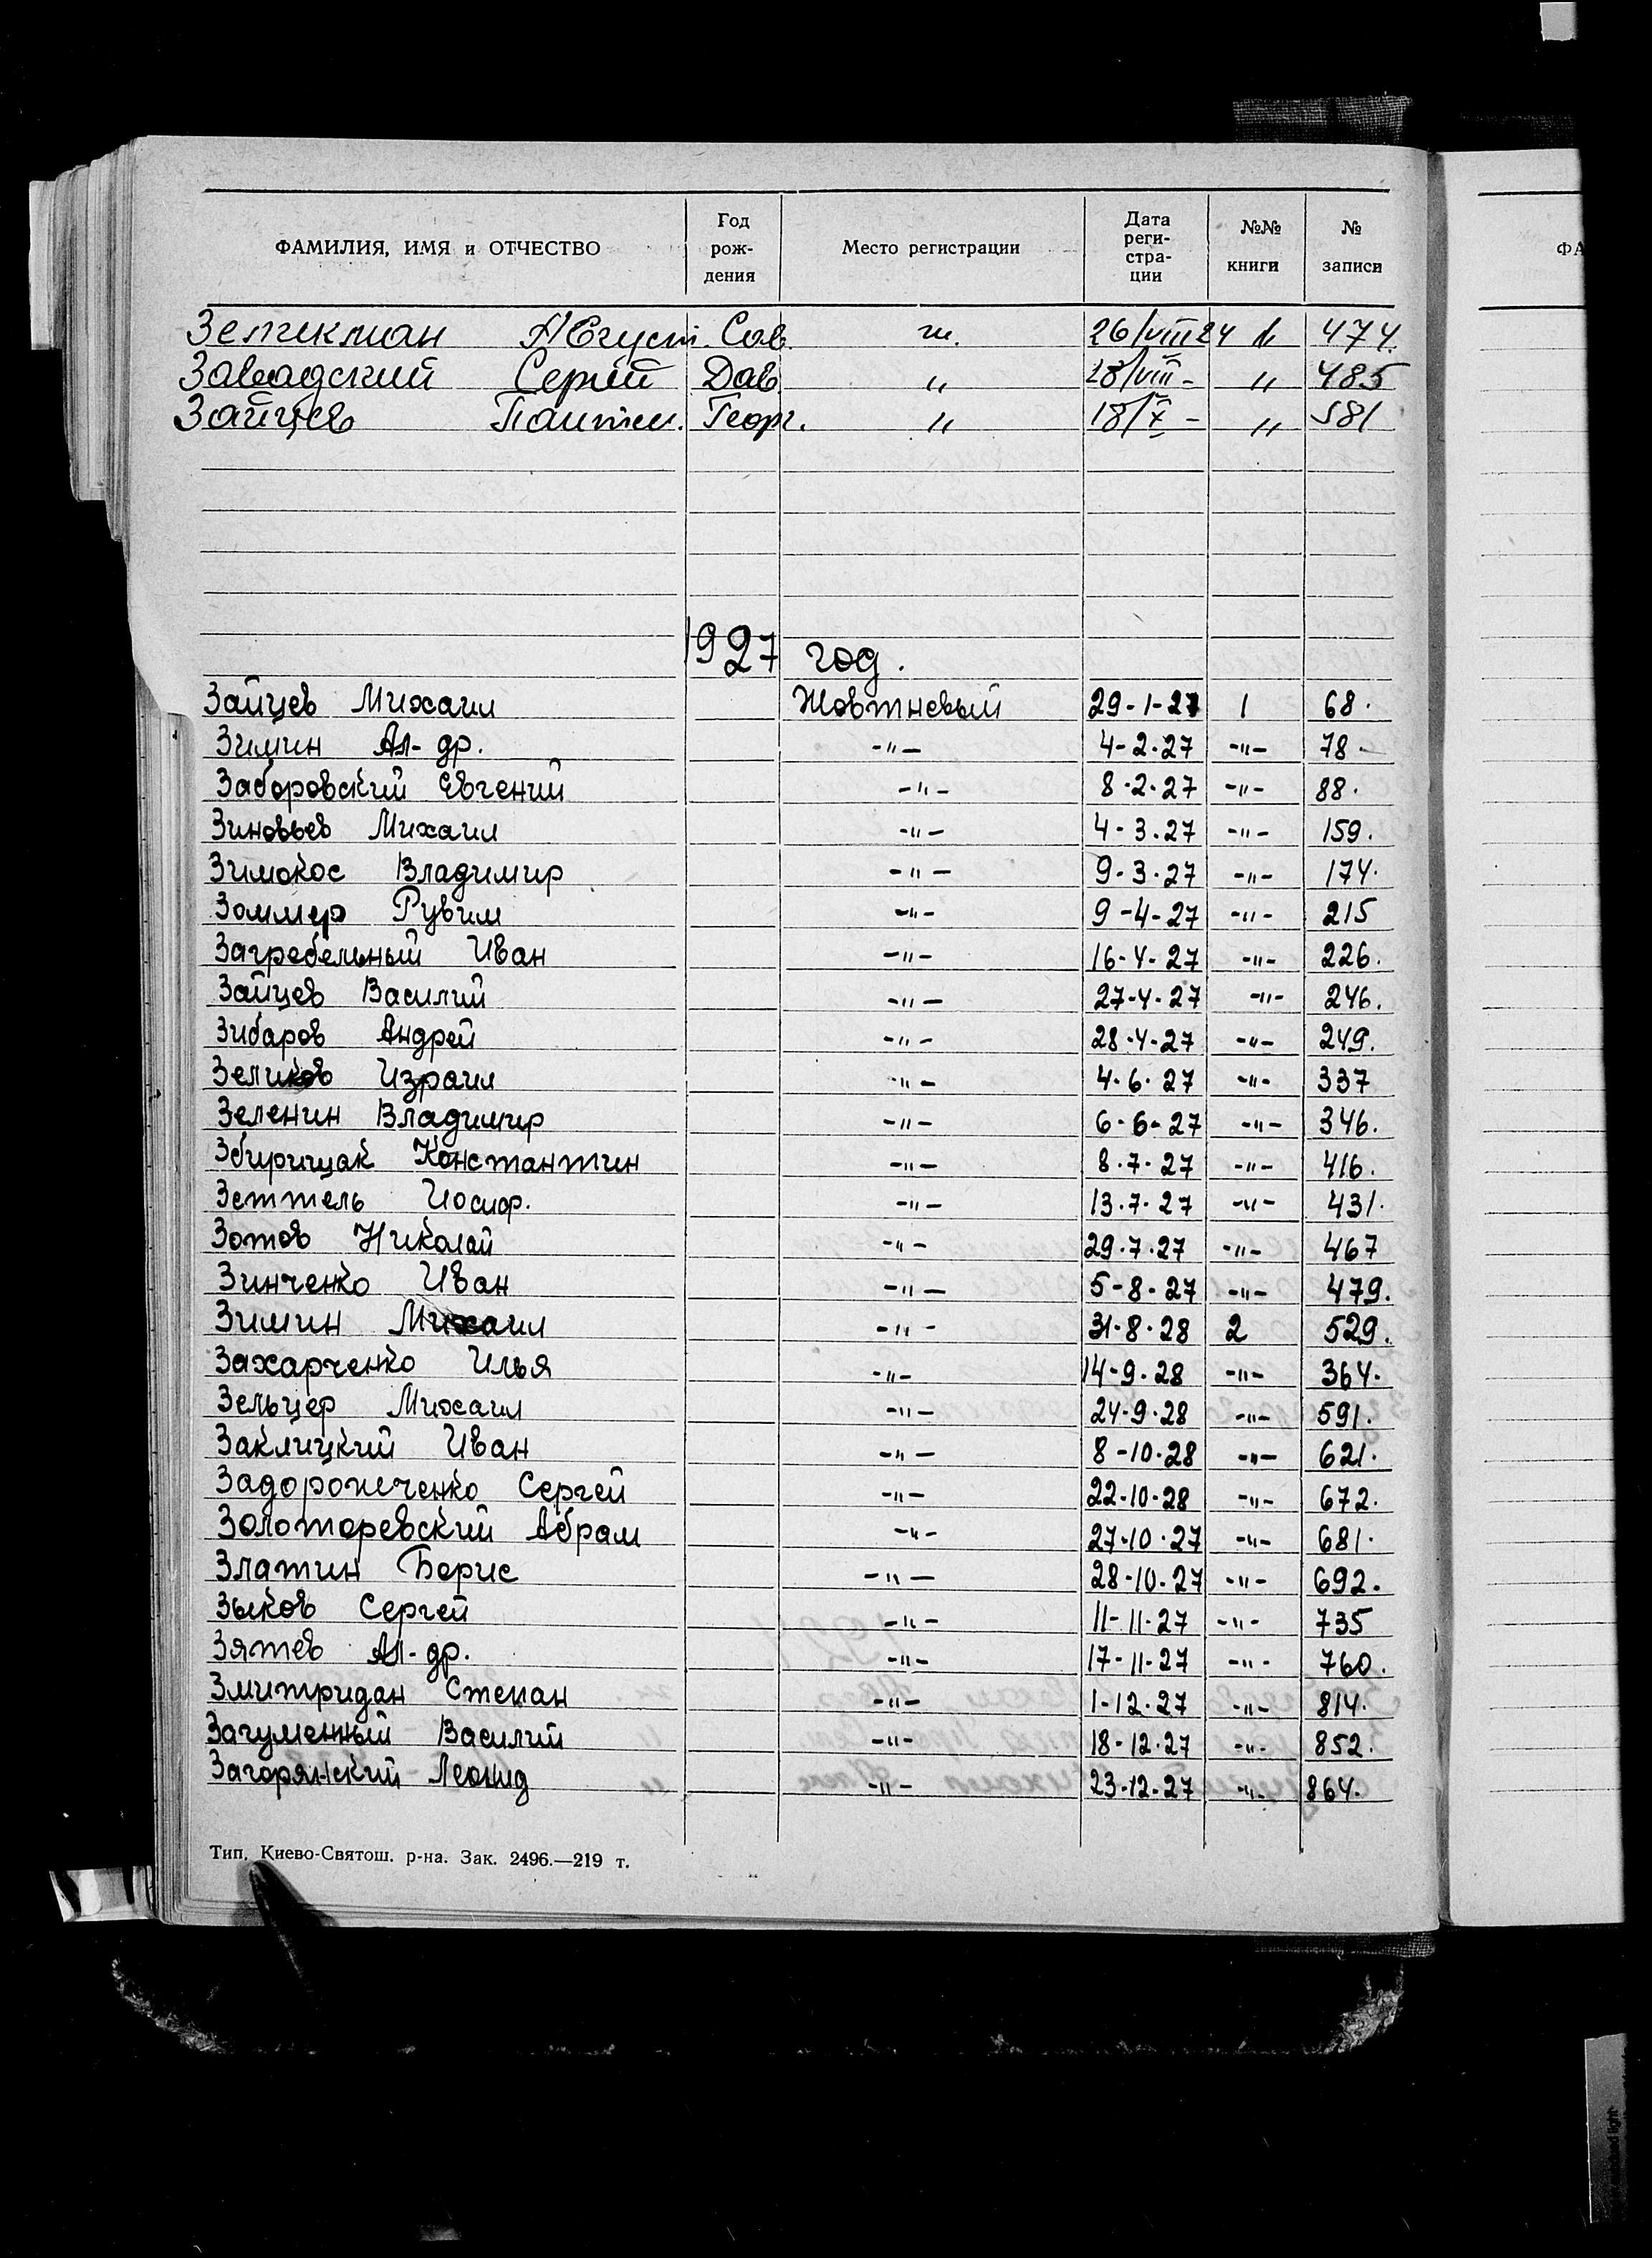 ФАМИЛИЯ, ИМЯ и ОТЧЕСТВО Год рож- дения Место регистрации Дата реги- стра- ции №№ книги № записи
ФА
Зеликман Август. Сав. ш. 26/VIII 24 474.
Завадский Сергей Дав. " 28/VIII - " 485
Зайцев Пантел. Георг. " 18/X - " 581
1927 год.
Зайцев Михаил Жовтневый 29-1-27 1 68.
Зимин Ал-др. -"- 4-2-27 -"- 78
Заборовский Евгений -"- 8-2-27 -"- 88.
Зиновьев Михаил -"- 4-3-27 -"- 159.
Зимокос Владимир -"- 9-3-27 -"- 174.
Зоммер Рувим -"- 9-4-27 -"- 215
Загребельный Иван -"- 16-4-27 -"- 226.
Зайцев Василий -"- 27-4-27 -"- 246.
Зибаров Андрей -"- 28-4-27 -"- 249.
Зеликов Израил -"- 4-6-27 -"- 337
Зеленин Владимир -"- 6-6-27 -"- 346.
Збирищак Константин -"- 8-7-27 -"- 416.
Зеттель Иосиф. -"- 13-7-27 -"- 431.
Зотов Николай -"- 29-7-27 -"- 467
Зинченко Иван -"- 5-8-27 -"- 479.
Зимин Михаил -"- 31-8-28 2 529.
Захарченко Илья -"- 14-9-28 -"- 364.
Зельцер Михаил -"- 24-9-28 -"- 591.
Заклицкий Иван -"- 8-10-28 -"- 621.
Задорожченко Сергей -"- 22-10-28 -"- 672.
Золотаревский Абрам -"- 27-10-27 -"- 681.
Златин Борис -"- 28-10-27 -"- 692.
Зыков Сергей -"- 11-11-27 -"- 735
Зятев Ал-др. -"- 17-11-27 -"- 760.
Змитридан Степан -"- 1-12-27 -"- 814.
Загуменный Василий -"- 18-12-27 -"- 852.
Загорянский Леонид -"- 23-12-27 -"- 864.
Тип. Киево-Святош. р-на. Зак. 2496.—219 т.